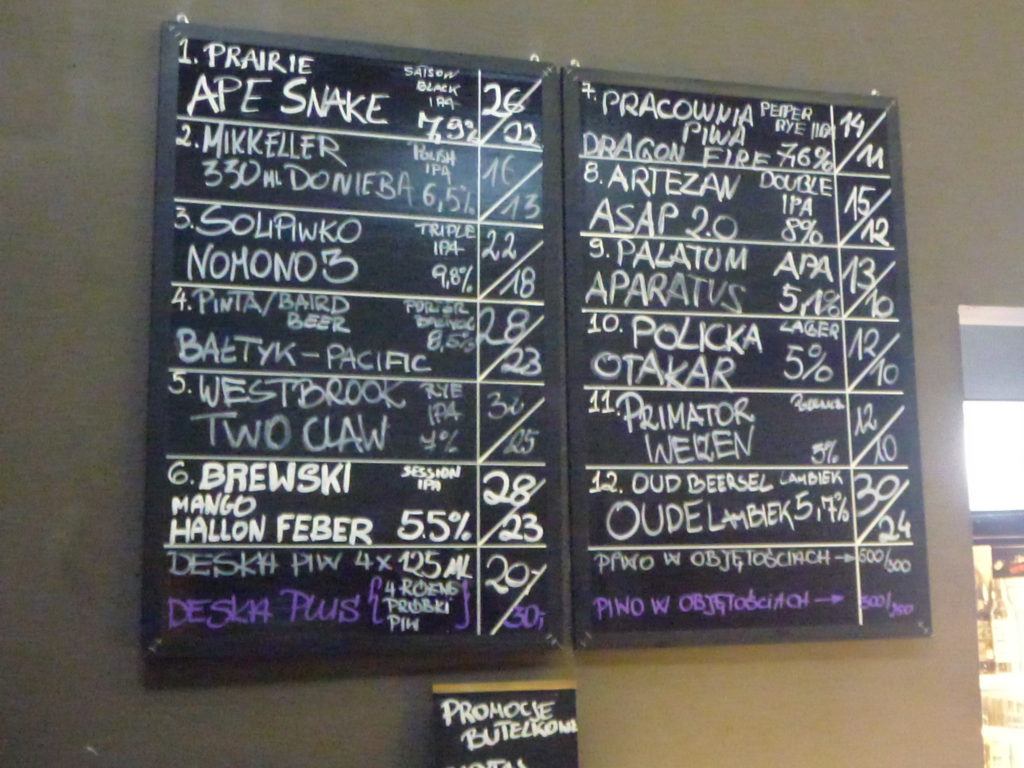 1. PRAIRIE SAISON BLACK IPA
APE SNAKE 7,9% 26/22
2. MIKKELLER POLISH IPA
330 ML DO NIEBA 6,5% 16/13
3. SOLIPIWKO TRIPLE IPA
NOMONO 3 9,8% 22/18
4. PINTA/BAIRD BEER PORTER BAŁTYCKI 8,5%
BAŁTYK-PACIFIC 28/23
5. WESTBROOK RYE IPA
TWO CLAW 7% /25
6. BREWSKI SESSION IPA
MANGO
HALLON FEBER 5.5% 28/23
DESKA PIW 4 x 125 ML 20,-
DESKA PLUS [4 RÓŻNE PRÓBKI PIW] 30,-
7. PRACOWNIA PIWA PEPPER RYE IPA
DRAGON FIRE 7,6% 14/11
8. ARTEZAN DOUBLE IPA
ASAP 2.0 8% 15/12
9. PALATUM APA
APARATUS 5,1% 13/10
10. POLICKA LAGER
OTAKAR 5% 12/10
11. PRIMATOR
WEIZEN 12/10
12. OUD BEERSEL LAMBIEK
OUDE LAMBIEK 5,7% 30/24
PIWO W OBJĘTOŚCIACH → 500/300
PIWO W OBJĘTOŚCIACH →
PROMOCJE
BUTELKOWE